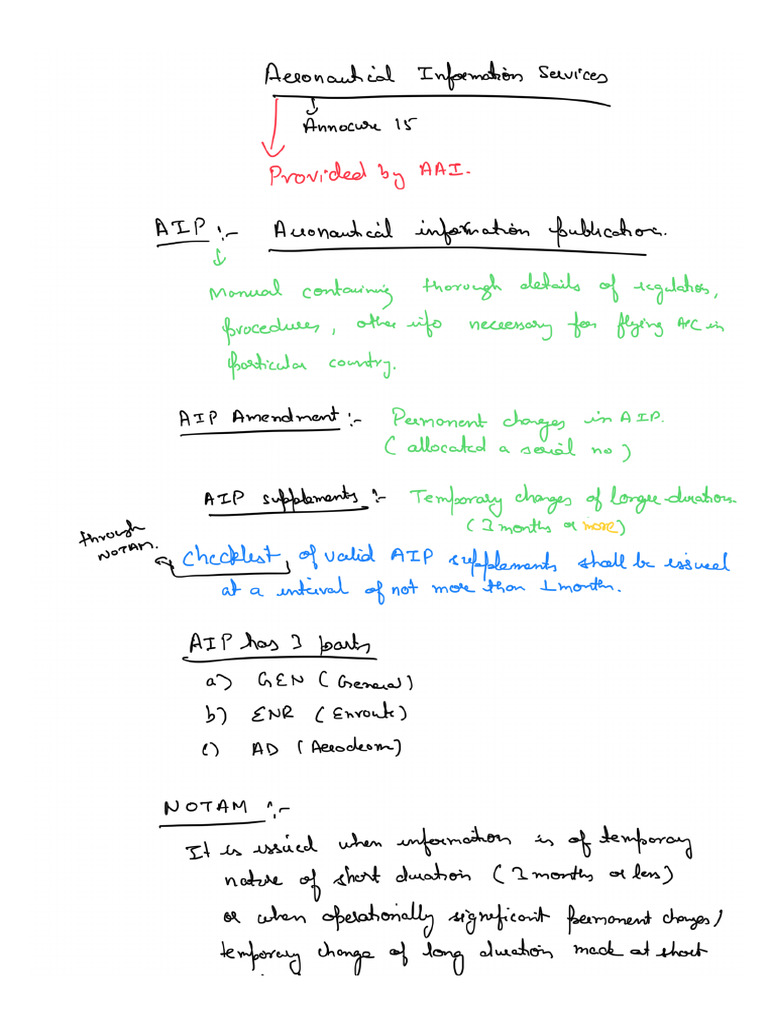 Aeronautical Information Services
Annocure 15
Provided by AAI.
AIP :- Aeronautical information publication.
Manual containing thorough details of regulation,
procedures, other info necessary for flying A/C in
particular country.
AIP Amendment :- Permanent changes in AIP.
(allocated a serial no)
AIP supplements :- Temporary changes of longer duration.
(3 months or more)
through
NOTAM.
checklist of valid AIP supplements shall be issued
at a interval of not more than 1 month.
AIP has 3 parts
a) GEN (General)
b) ENR (Enroute)
c) AD (Aerodrom)
NOTAM :-
It is issued when information is of temporary
nature of short duration (3 months or less)
or when operationally significant permanent changes/
temporary change of long duration made at short